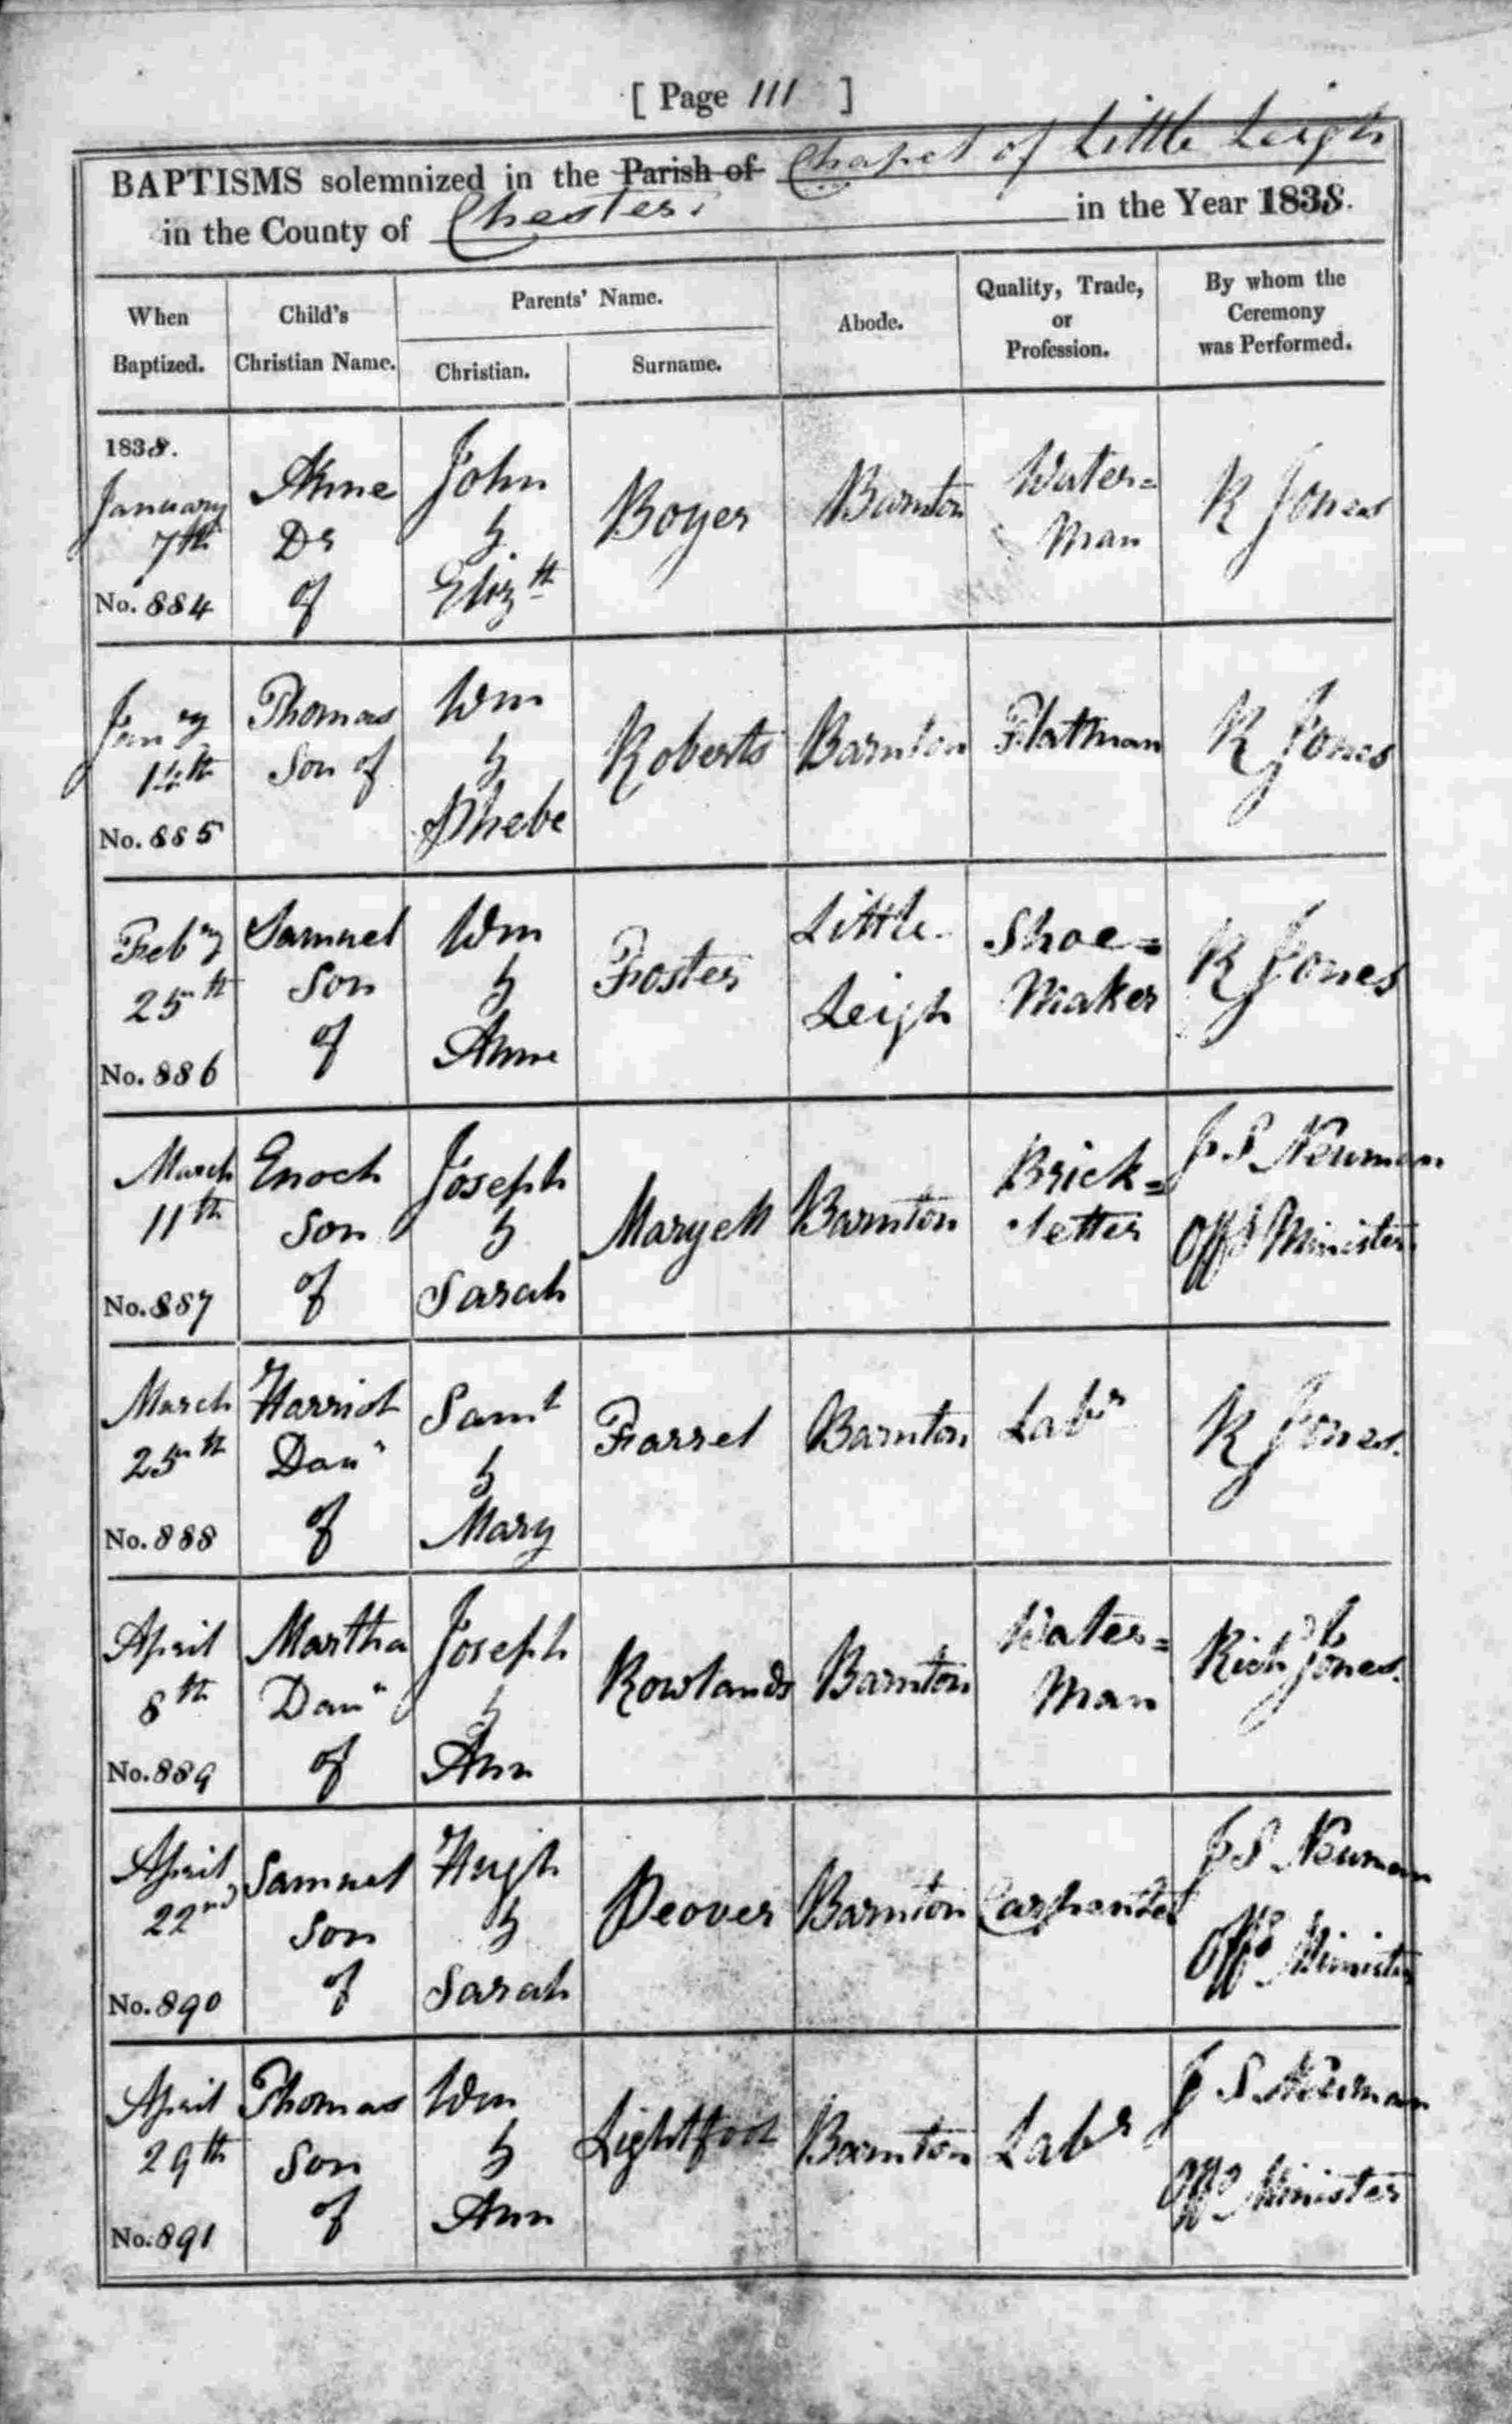 [ Page 111 ]
BAPTISMS solemnized in the Parish of Chapel of Little Leigh
in the County of Chester in the Year 1838.
When Baptized. Child's Christian Name. Parents' Name. Christian. Surname. Abode. Quality, Trade, or Profession. By whom the Ceremony was Performed.
1838.
January 7th
No. 884
Anne
Dr
of
John
&
Elizth
Boyer
Barnton
Water=
Man
R Jones
Jany
14th
No. 885
Thomas
Son of
Wm
&
Phebe
Roberts
Barnton
Flatman
R Jones
Feby
25th
No. 886
Samuel
Son
of
Wm
&
Anne
Foster
Little
Leigh
Shoe=
Maker
R Jones
March
11th
No. 887
Enoch
Son
of
Joseph
&
Sarah
Maryell
Barnton
Brick=
setter
J S Newman
Offg Minister
March
25th
No. 888
Harriot
Daur
of
Saml
&
Mary
Farrel
Barnton
Labr
R Jones.
April
8th
No. 889
Martha
Daur
of
Joseph
&
Ann
Rowlands
Barnton
Water=
Man
Richd Jones.
April
22nd
No. 890
Samuel
Son
of
Hugh
&
Sarah
Peover
Barnton
Carpenter
J S Newman
Offg Minister
April
29th
No. 891
Thomas
Son
of
Wm
&
Ann
Lightfoot
Barnton
Labr
J S Newman
Offg Minister